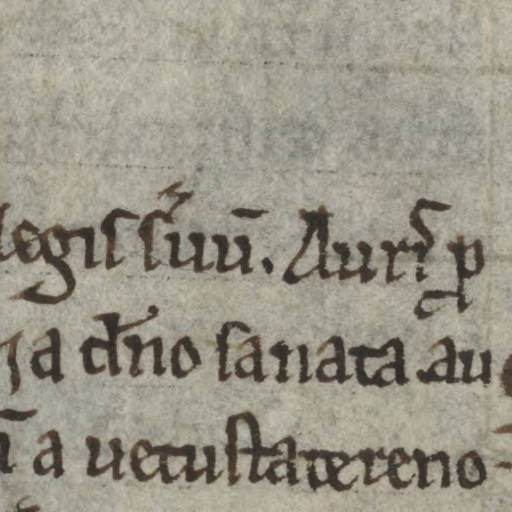 legis suū. Aurē ꝓ
a dn̄o sanata. au
a uetustate reno-